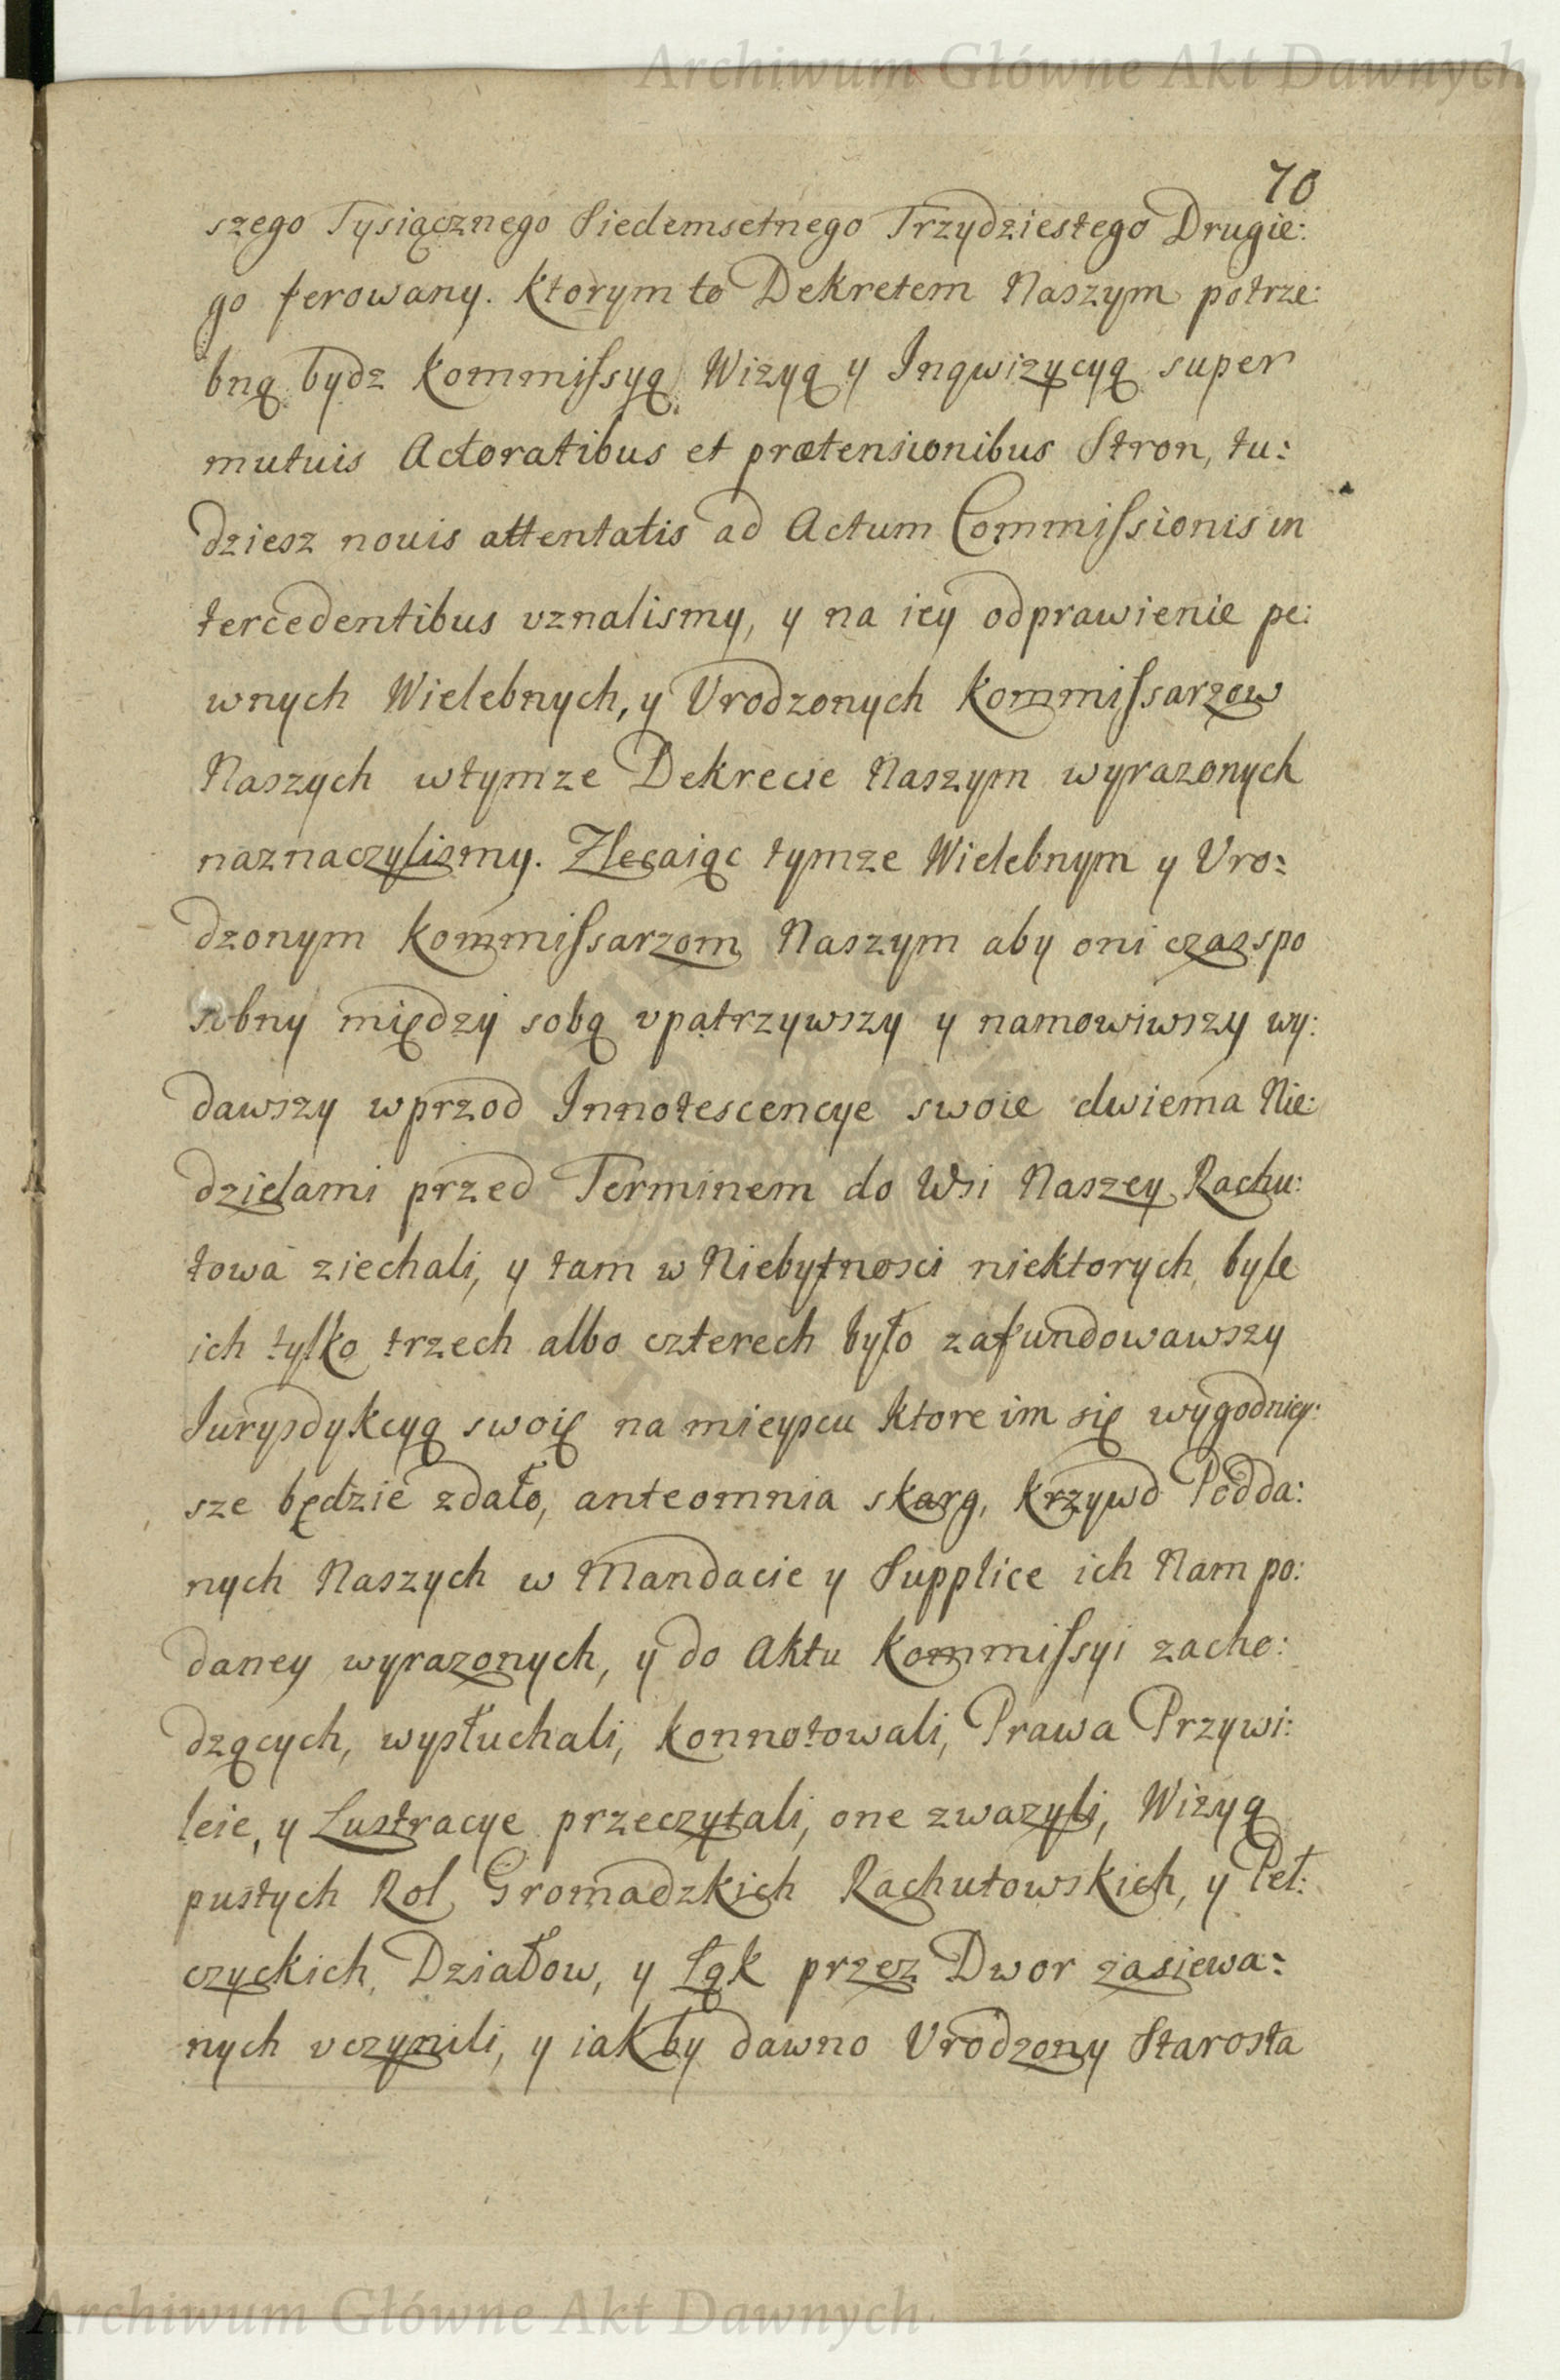 Archiwum Główne Akt Dawnych
70
szego Tysiącznego Siedemsetnego Trzydziestego Drugie:
go ferowany. Ktorym to Dekretem Naszym potrze:
bną bydz Kommiſsyą Wizyą y Inqwizycyą super
mutuis Actoratibus et prætensionibus Stron, tu:
dziesz nouis attentatis ad Actum Commiſsionis in
tercedentibus vznalismy, y na iey odprawienie pe:
wnych Wielebnych, y Vrodzonych Kommiſsarzow
Naszych wtymze Dekrecie Naszym wyrazonych
naznaczylismy. Zlecaiąc tymze Wielebnym y Vro:
dzonym Kommiſsarzom Naszym aby oni czas spo
sobny między sobą vpatrzywszy y namowiwszy wy:
dawszy wprzod Innotescencye swoie dwiema Nie:
dzielami przed Terminem do Wsi Naszey Rachu:
towa ziechali, y tam w Niebytnosci niektorych byle
ich tylko trzech albo czterech było zafundowawszy
Iurysdykcyą swoię na mieyscu ktore im się wygodniey:
sze będzie zdało, anteomnia skarg, krzywd Podda:
nych Naszych w Mandacie y Supplice ich Nam po:
daney wyrazonych, y do Aktu Kommiſsyi zacho:
dzących, wysłuchali, konnotowali, Prawa Przywi:
leie, y Lustracye przeczytali, one zwazyli, Wizyą
pustych Rol Gromadzkich Rachutowskich, y Peł:
czyckich Działow, y Łąk przez Dwor zasiewa:
nych vczynili, y iak by dawno Vrodzony Starosta
Archiwum Główne Akt Dawnych